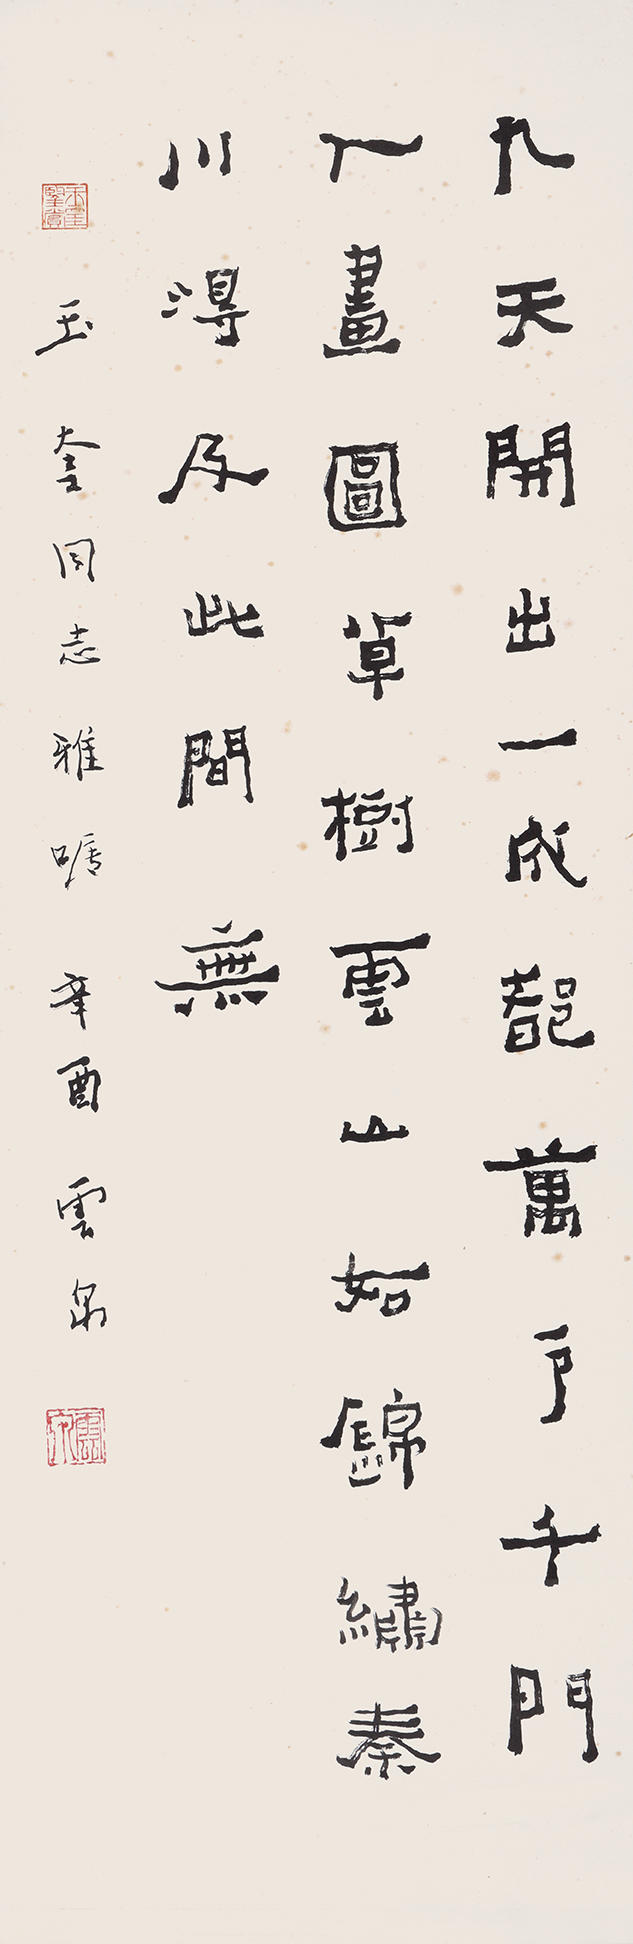 九天開出一成都萬户千門
入畫圖草樹雲山如錦繡秦
川得及此間無
玉奎同志雅嘱辛酉雲泉